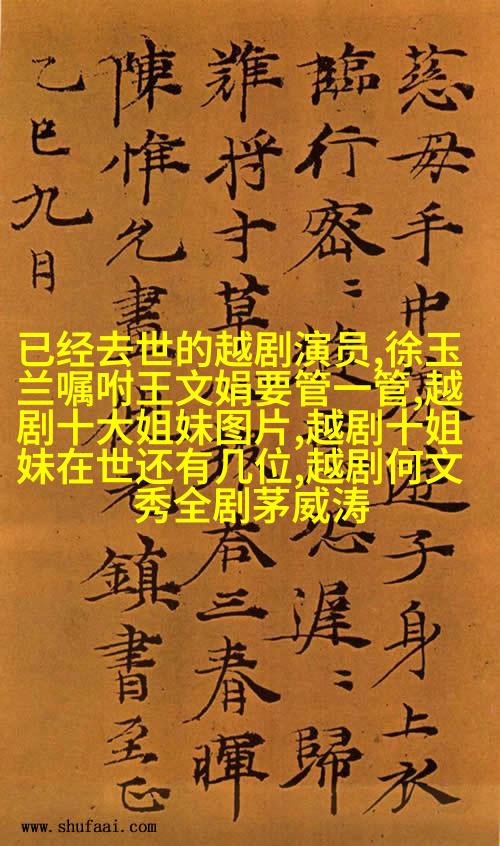 慈母手中遊子身上衣
臨行密〻恐遲〻歸
難将寸草答三春暉
陳惟允畫鎮書至正
乙巳九月
已经去世的越剧演员,徐玉
兰嘱咐王文娟要管一管,越
剧十大姐妹图片,越剧十姐
妹在世还有几位,越剧何文
秀全剧茅威涛
www.shufaai.com